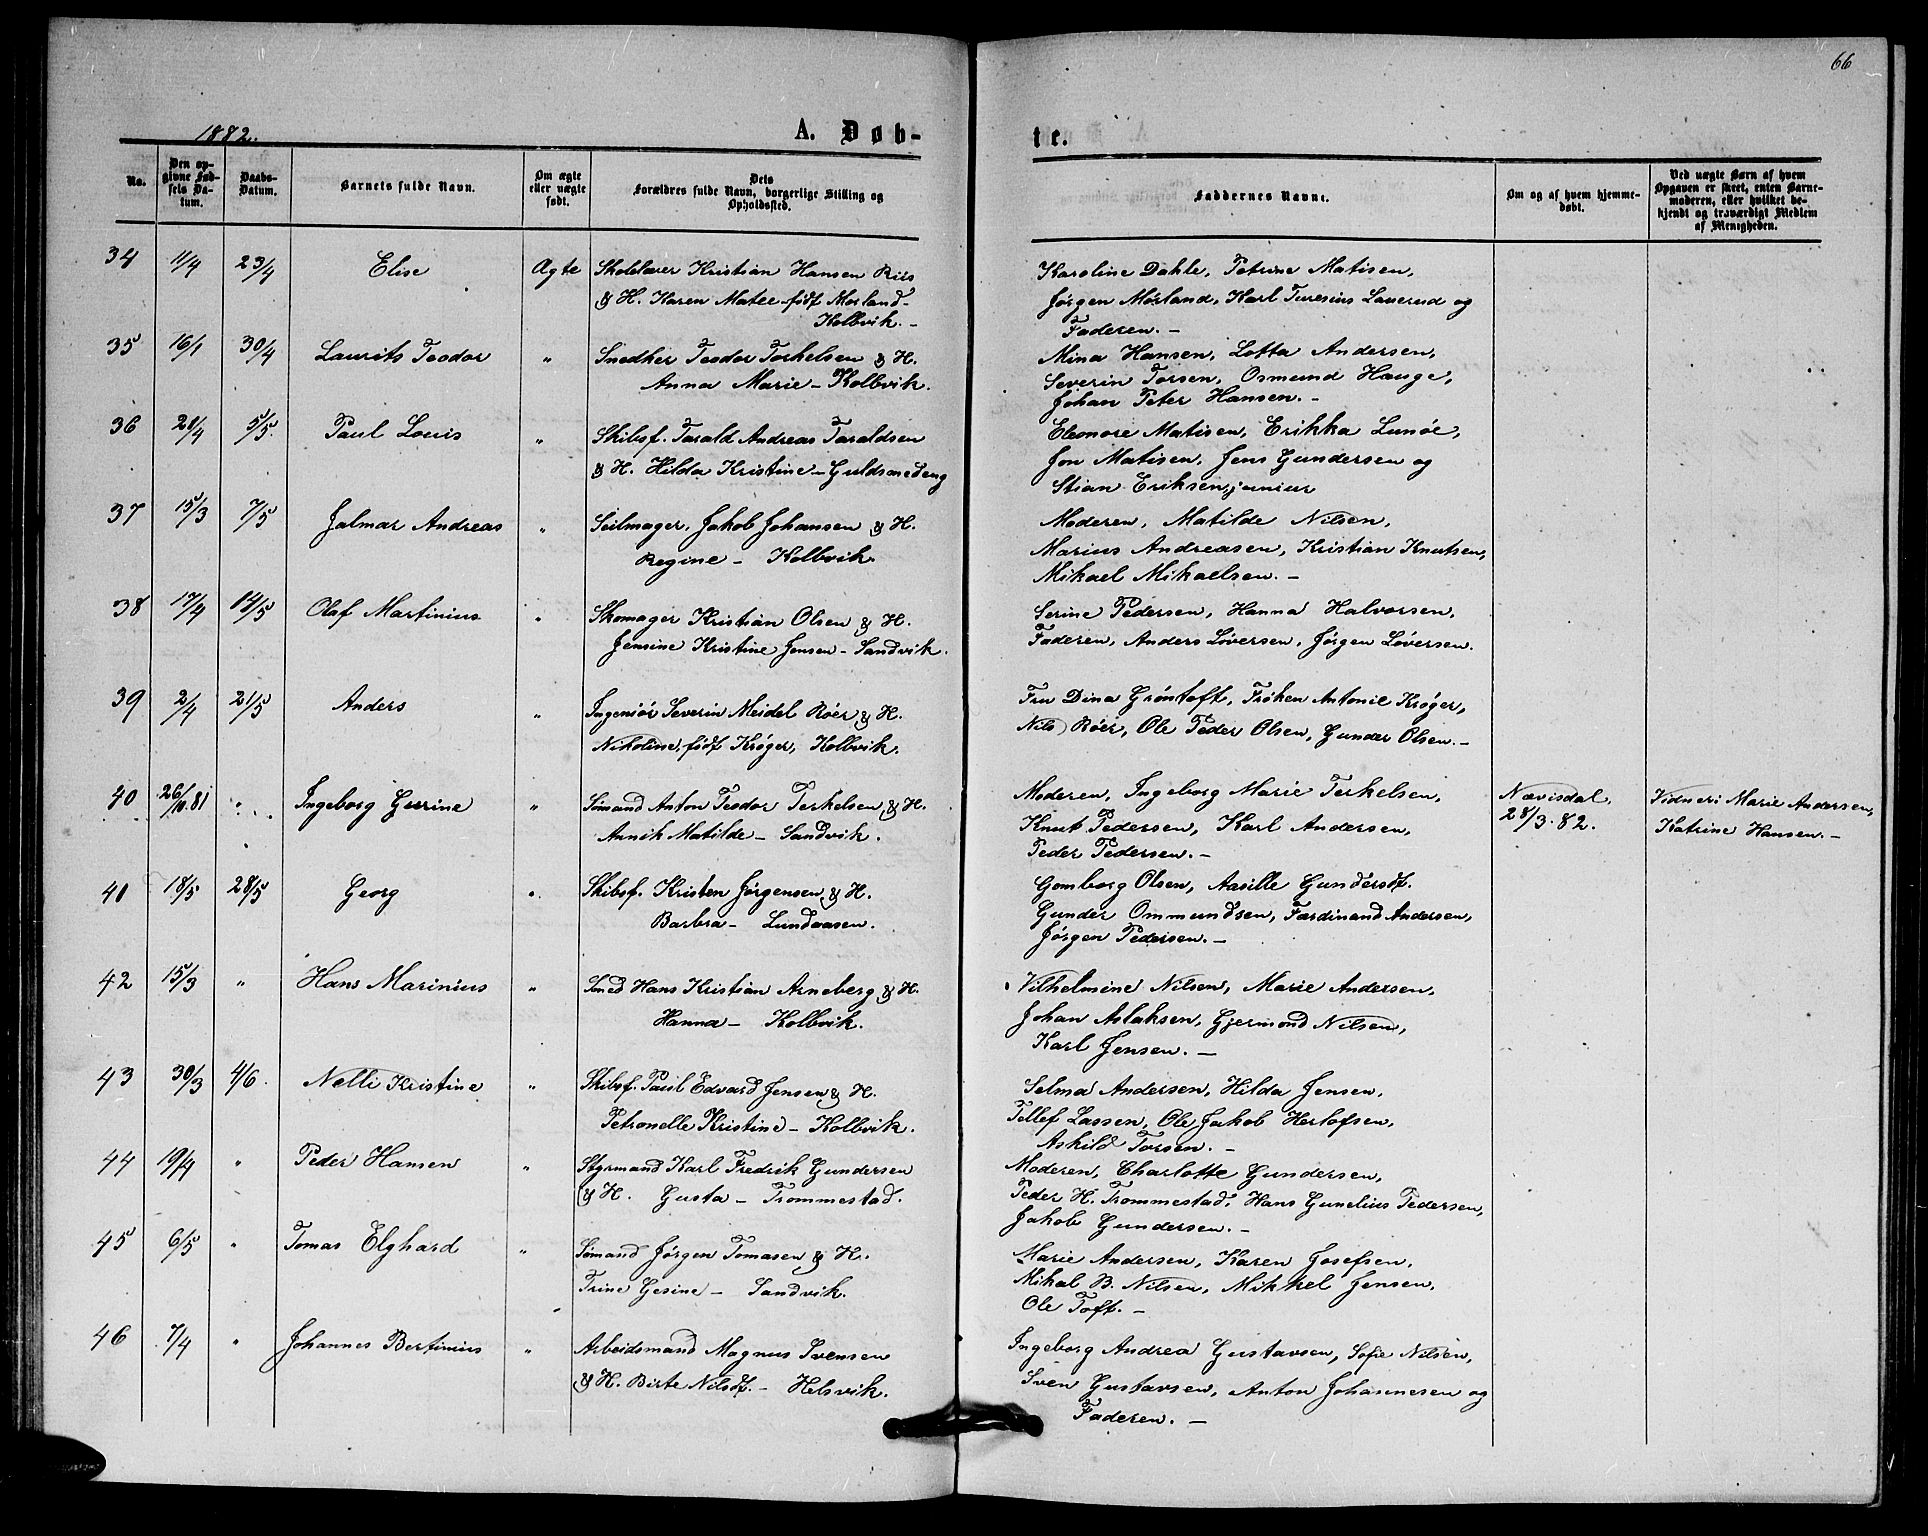 66
1882.
A. Døb-
te.
No.
Den op-
givne Fød-
sels Da-
tum.
Daabs-
Datum.
Barnets fulde Navn.
Om ægte
eller uægte
født.
Dets
Forældres fulde Navn, borgerlige Stilling og
Opholdssted.
Faddernes Navne.
Om og af hvem hjemme-
døbt.
Ved uægte Børn af hvem
Opgaven er skeet, enten Barne-
moderen, eller hvilket be-
kjendt og troværdigt Medlem
af Menigheden.
34 11/4 23/4 Elise Ægte Skolelærer Kristian Hansen Riis
& H. Karen Matee født Mørland-
Kolbvik. -
Karoline Dahle, Petrine Matisen,
Jørgen Mørland, Karl Turesius Laverud og
Faderen. -
35 16/1 30/4 Laurits Teodor " Snedker Teodor Terkelsen & H.
Anna Marie - Kolbvik.
Mina Hansen, Lotta Andersen,
Severin Torsen, Osmund Hauge,
Johan Peter Hansen. -
36 28/4 5/5. Paul Louis " Skibsf. Tarald Andreas Taraldsen
& H. Hilda Kristine - Guldsmedeng
Eleonore Matisen, Erikka Lunøe,
Jon Matisen, Jens Gundersen og
Stian Eriksen, junior
37 15/3 7/5 Jalmar Andreas " Seilmager, Jakob Johansen & H.
Regine - Kolbvik.
Moderen, Matilde Nilsen,
Marius Andreasen, Kristian Knutsen,
Mikael Mikaelsen. -
38 17/4 14/5 Olaf Martinius " Skomager Kristian Olsen & H.
Jensine Kristine Jensen - Sandvik.
Serine Pedersen, Hanna Halvorsen,
Faderen, Anders Løversen, Jørgen Løversen.
39 2/4 21/5 Anders " Ingeniør Severin Meidel Röer & H.
Nikoline, født Krøger, Kolbvik.
Fru Dina Grøntoft, Frøken Antonie Krøger,
Nils Röer, Ole Peder Olsen, Gunder Olsen. -
40 26/10.81 " Ingeborg Gurine " Sömand Anton Teodor Terkelsen, & H.
Annik Matilde - Sandvik.
Moderen, Ingeborg Marie Terkelsen,
Knut Pedersen, Karl Andersen,
Peder Pedersen. -
Nævisdal,
28/3.82.
Vidneri Marie Andersen,
Katrine Hansen. -
41 18/5 28/5 Georg " Skibsf. Kristen Jørgensen & H.
Barbra - Lundvaasen.
Gomborg Olsen, Aasille Gundersdt.
Gunder Ommundsen, Ferdinand Andersen,
Jørgen Pedersen. -
42 15/3 " Hans Marinius " Smed Hans Kristian Arneberg & H.
Hanna - Kolbvik.
Vilhelmine Nilsen, Marie Andersen,
Johan Aslaksen, Gjermond Nilsen,
Karl Jensen. -
43 30/3 4/6. Nelli Kristine " Skibsf. Paul Edvard Jensen & H.
Petronelle Kristine - Kolbvik.
Selma Andersen, Hilda Jensen,
Tellef Lassen, Ole Jakob Herlofsen,
Askild Torsen. -
44 19/4 " Peder Hansen " Styrmand Karl Fredrik Gundersen
& H. Gusta - Trommestad.
Moderen, Charlotte Gundersen,
Peder H. Trommestad, Hans Gunelius Pedersen,
Jakob Gundersen. -
45 6/5 " Tomas Elghard " Sömand Jørgen Tomasen & H.
Trine Gesine - Sandvik.
Marie Andersen, Karen Josefsen,
Mikal B. Nilsen, Mikkel Jensen,
Ole Toft. -
46 7/4 " Johannes Bertinius " Arbeidsmand Magnus Svensen
& H. Birte Nilsdt. - Helsvik.
Ingeborg Andrea Gustavsen, Sofie Nilsen,
Sven Gustavsen, Anton Johannesen og
Faderen. -